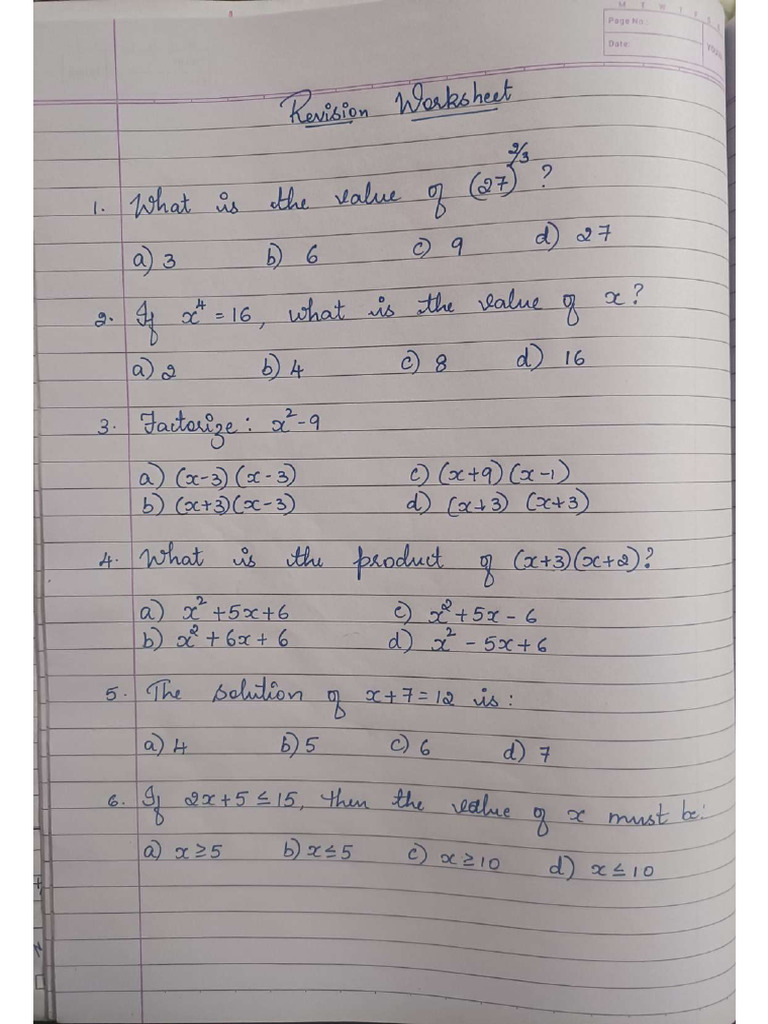 MEWIFSE
Page No.:
Date:
Revision Worksheet
1. What is the value of (27)^2/3 ?
a) 3 b) 6 c) 9 d) 27
2. If x^4 = 16, what is the value of x?
a) 2 b) 4 c) 8 d) 16
3. Factorize: x²-9
a) (x-3)(x-3) c) (x+9)(x-1)
b) (x+3)(x-3) d) (x+3) (x+3)
4. What is the product of (x+3)(x+2)?
a) x²+5x+6 c) x²+5x-6
b) x²+6x+6 d) x²-5x+6
5. The solution of x+7=12 is:
a) 4 b) 5 c) 6 d) 7
6. If 2x+5≤15, then the value of x must be:
a) x≥5 b) x≤5 c) x≥10 d) x≤10